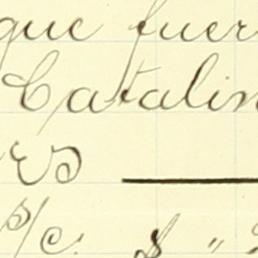 que fuer
Catalin
rs
S/c. $ "